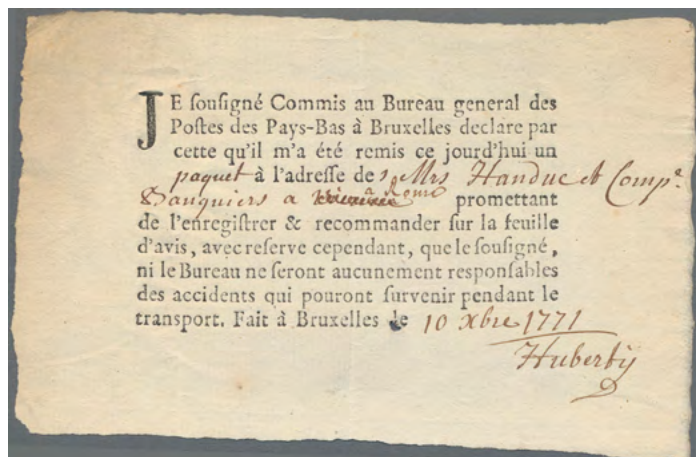 JE ſouſigné Commis au Bureau general des
Poſtes des Pays-Bas à Bruxelles declare par
cette qu'il m'a été remis ce jourd'hui un
paquet à l'adreſſe de s Mrs Handuc et Comp.e
Banquiers a à Rome promettant
de l'enregiſtrer & recommander ſur la feuille
d'avis, avec reſerve cependant, que le ſouſigné,
ni le Bureau ne ſeront aucunement reſponſables
des accidents qui pouront ſurvenir pendant le
transport. Fait à Bruxelles le 10 xbre 1771
Hubertÿ